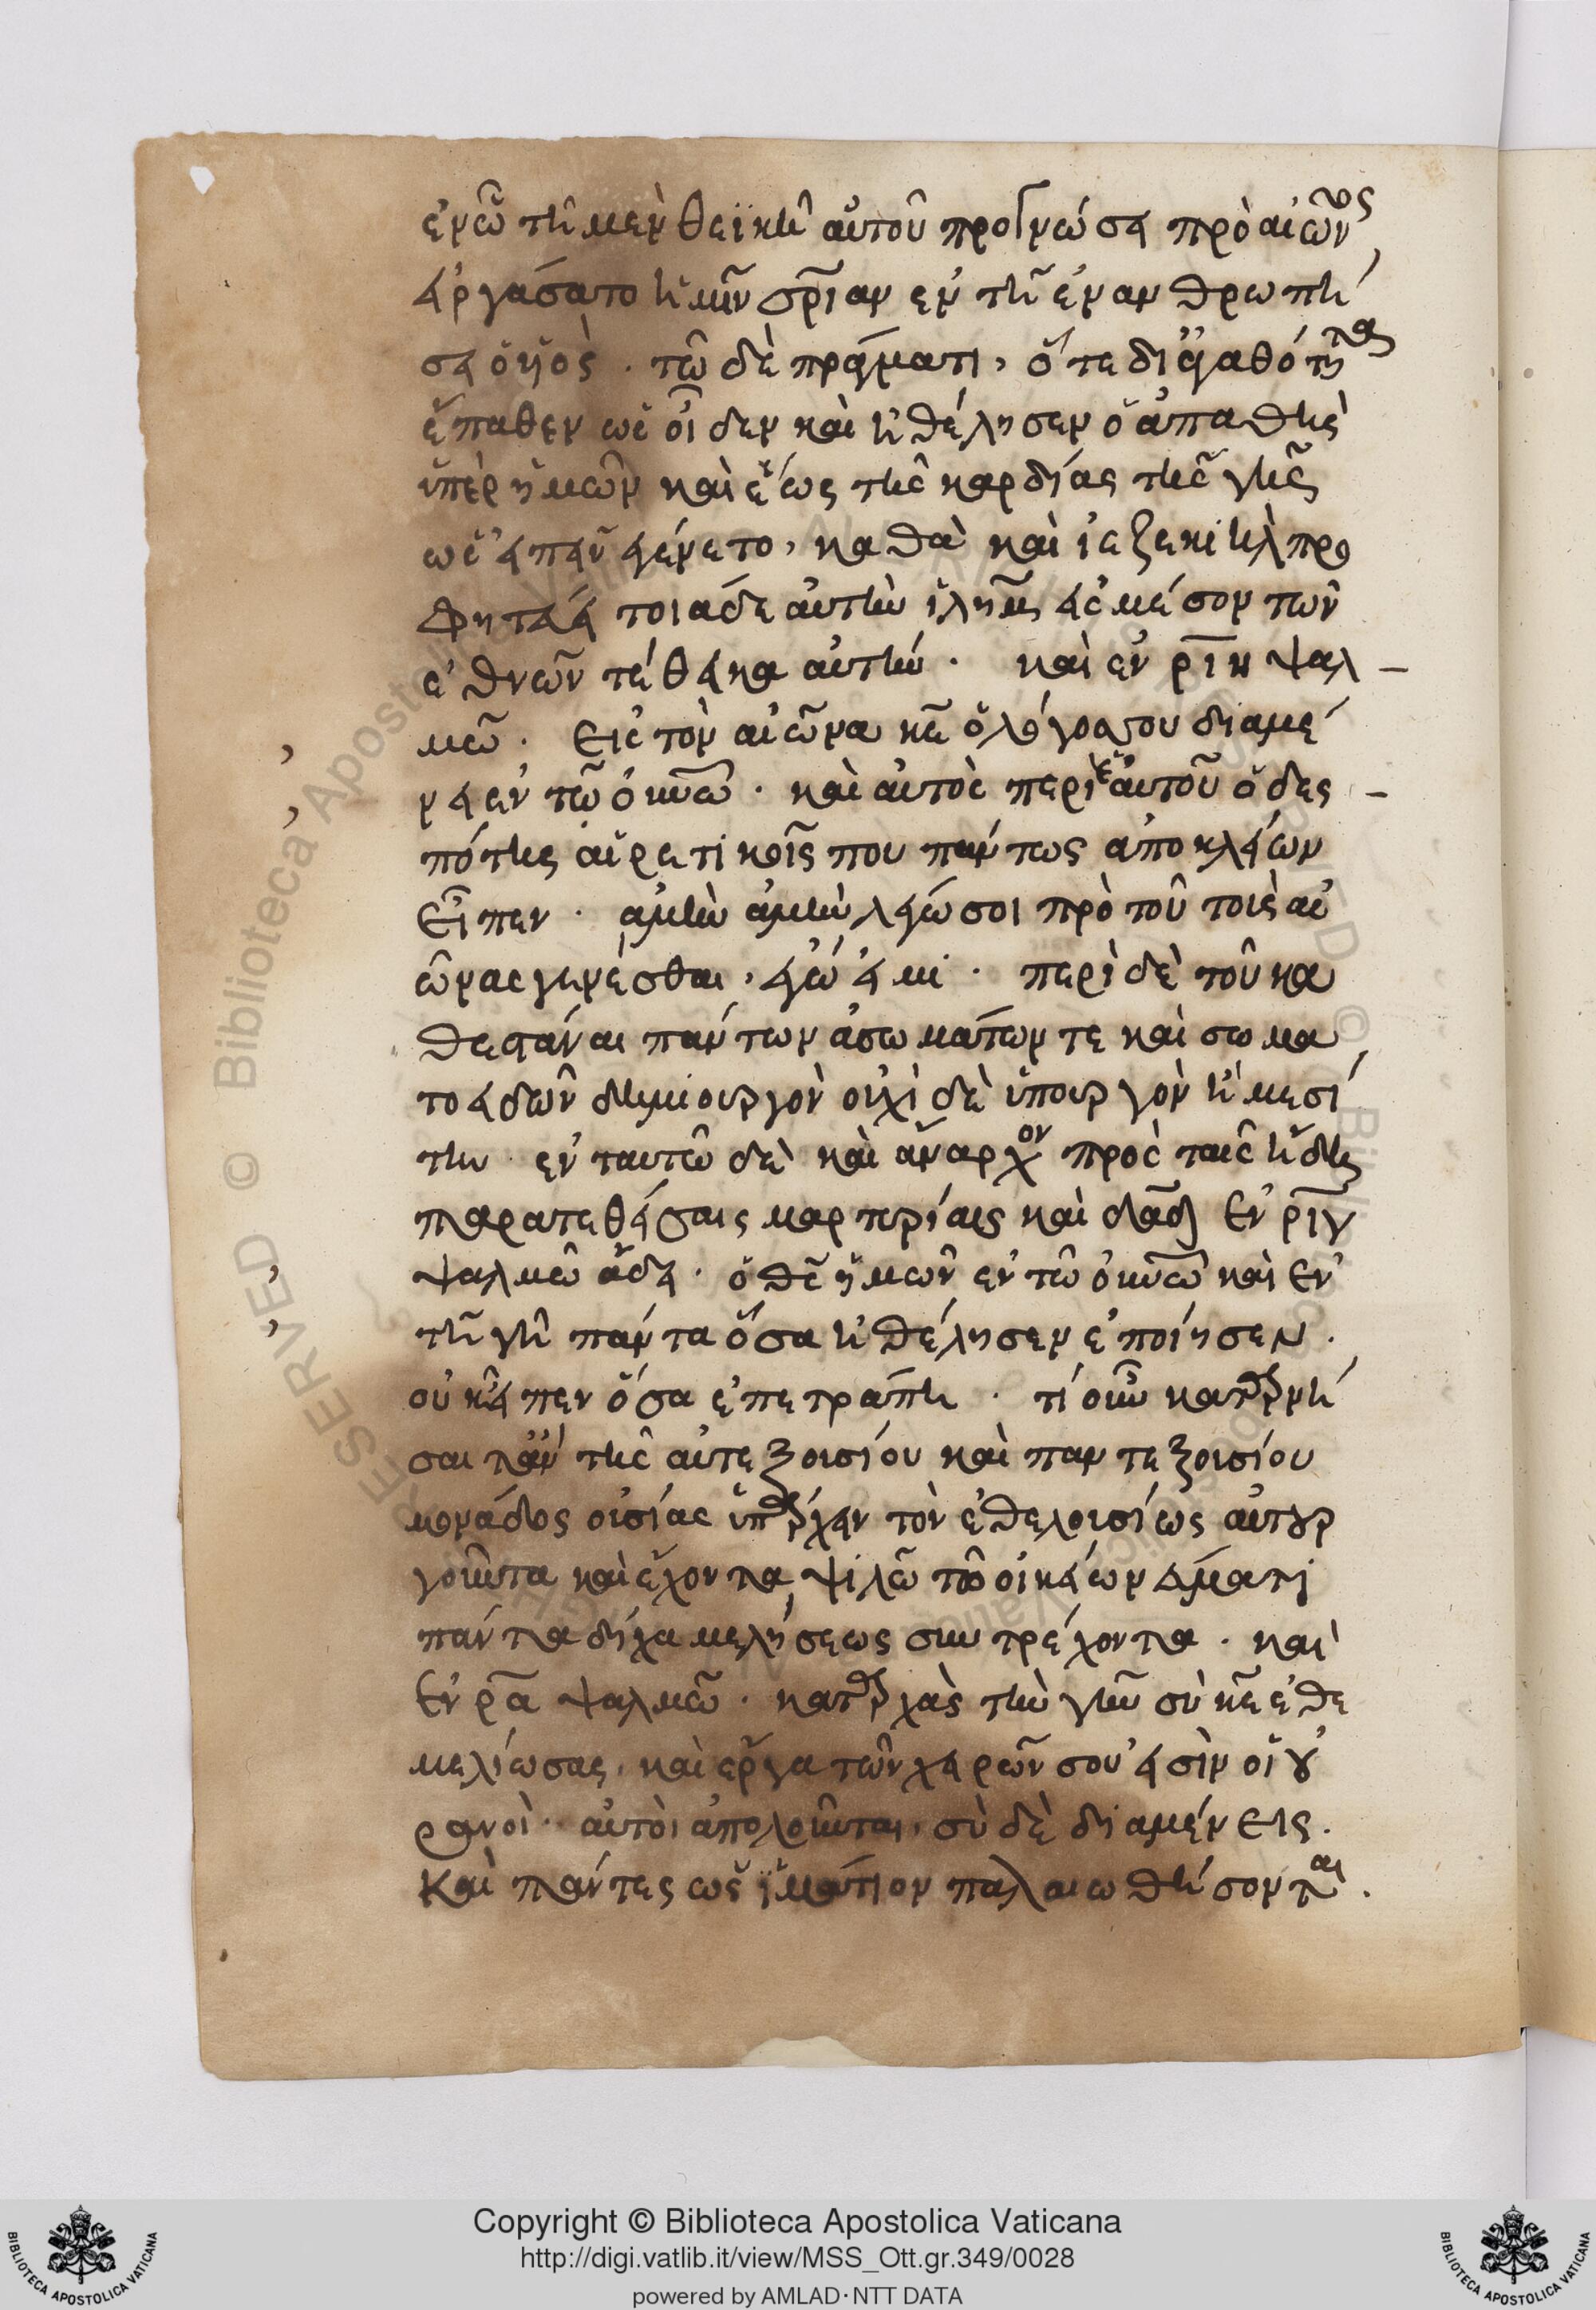 ἐνῶ τῆ μὲν θεϊκῆ αὐτοῦ προγνώσει πρὸ αἰῶνος
εἰργάσατο ἡμῖν σ̅ρ̅ιαν ἐν τῆ ἐνανθρωπή
σει ὁ υἱὸς · τῶ δὲ πράγματι, ὅτε δι ἀγαθότητα
ἔπαθεν ὡς οἶδεν καὶ ἠθέλησεν ὁ ἀπαθὴς
ὑπὲρ ἡμῶν καὶ ἕως τῆς καρδίας τῆς γῆς
ὡς εἰπεῖν ἐγένετο, καθὰ καὶ ἰεζεκιὴλ προ
φητεύει τοιάδε αὐτὴ ἰλημ εἰς μέσον τῶν
ἐθνῶν τέθεικα αὐτήν · καὶ ἐν ριη ψαλ
μῶ · Εἰς τὸν αἰῶνα κε ὁ λόγος σου διαμέ
νει ἐν τῶ ὀυνῶ · καὶ αὐτὸς περὶ ἑαυτοῦ ὁ δες
πότης αἱρετικοῖς που πάντως ἀποκλείων
Εἶπεν · ἀμὴν ἀμὴν λέγω σοι πρὸ τοῦ τοὺς αἰ
ῶνας γενέσθαι, ἐγώ εἰμι · περὶ δὲ τοῦ κα
θεστάναι πάντων ἀσωμάτων τε καὶ σωμα
τοειδῶν δημιουργὸν οὐχὶ δὲ ὑπουργὸν ἢ μεσί
την ἐν ταυτῶ δὲ καὶ ἄναρχον πρὸς ταῖς ἤδη
παρατεθείσαις μαρτυρίαις καὶ δα̅δ̅ Ἐν ριγ
ψαλμῶ ἄδει · ὁ θς ἡμῶν ἐν τῶ ὀυνῶ καὶ Ἐν
τῆ γῆ πάντα ὅσα ἠθέλησεν ἐποίησεν ·
οὐκ εἶπεν ὅσα ἐπετράπη · τί οὖν κατ
σαι τῆς αὐτεξουσίου καὶ παντεξουσίου
μονάδος οὐσίας ὑπάρχειν τὸν ἐθελουσίως αὐτουρ
γοῦντα καὶ ἔχοντα ψιλῶ τῶ οἰκείων
πάντα δίχα μελήσεως συντρέχοντα · καὶ
Ἐν ρα ψαλμῶ · κατ ἀρχὰς τὴν γῆν σὺ κε ἐθε
μελίωσας, καὶ ἔργα τῶν χειρῶν σου εἰσὶν οἱ ου
ρανοὶ · αὐτοὶ ἀπολοῦνται, σὺ δὲ διαμένεις ·
Καὶ πάντες ὡς ἱμάτιον παλαιωθήσονται ·
Copyright © Biblioteca Apostolica Vaticana
http://digi.vatlib.it/view/MSS_Ott.gr.349/0028
powered by AMLAD·NTT DATA